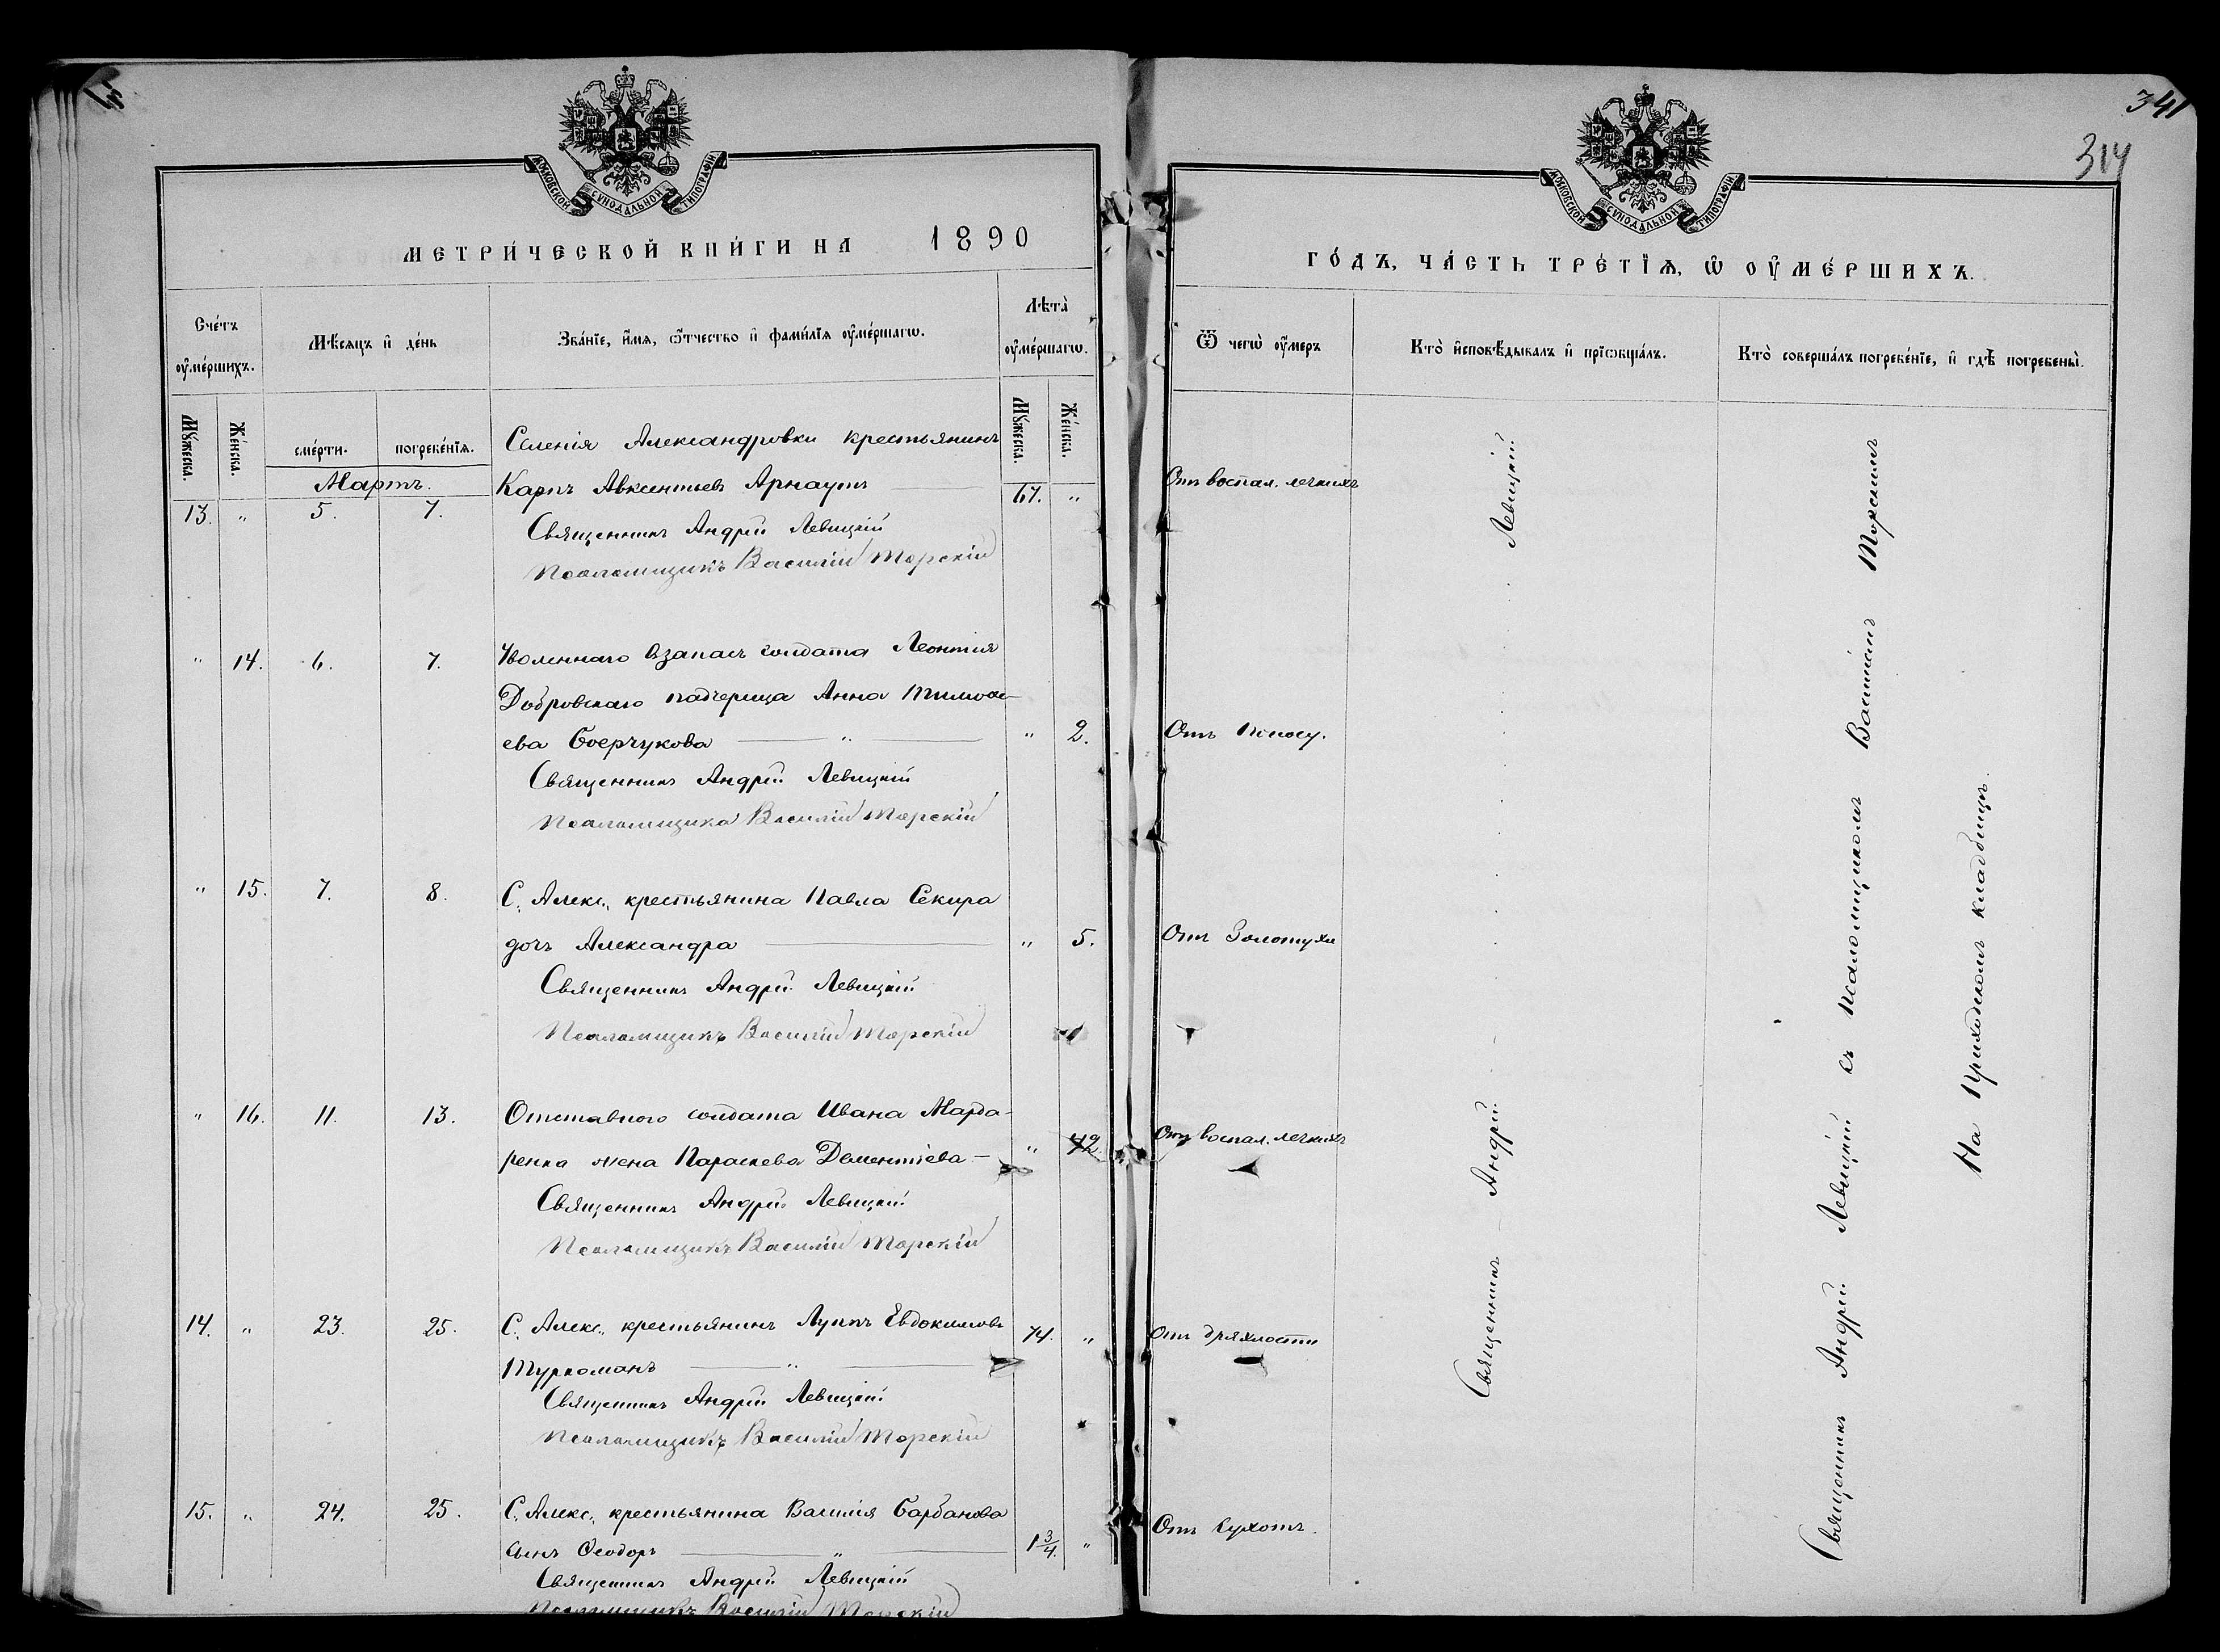 341
314
МОСКОВСКОЙ СѴНОДАЛЬНОЙ ТИПОГРАФІИ
МЕТРИ́ЧЕСКОЙ КНИ́ГИ НА 1890
Сче́тъ оу҆ме́ршихъ.
Мѣ́сяцъ и҆ де́нь
Зва́нїе, и҆́мя, ѻ҆́тчество и҆ фами́лїя оу҆ме́ршагѡ.
Лѣта̀ оу҆ме́ршагѡ.
Мꙋ́жеска.
Же́нска.
сме́рти.
погребе́нїя.
Мꙋ́жеска.
Же́нска.
Мартъ.
Селенія Александровки крестьянинъ
13. " 5. 7. Карпъ Авксентьевъ Арнаутъ 67. "
Священникъ Андрей Левицкій
Псаломщикъ Василій Торскій
" 14. 6. 7. Уволеннаго взапасъ солдата Леонтія
Добровскаго падчерица Анна Тимоѳе-
ева Боерчукова " 2.
Священникъ Андрей Левицкій
Псаломщикъ Василій Торскій
" 15. 7. 8. С. Алекс. крестьянина Павла Секира
дочь Александра " 5.
Священникъ Андрей Левицкій
Псаломщикъ Василій Торскій
" 16. 11. 13. Отставного солдата Ивана Марда-
ренка жена Параскева Дементіева " 42.
Священникъ Андрей Левицкій
Псаломщикъ Василій Торскій
14. " 23. 25. С. Алекс. крестьянинъ Луппъ Евдокимовъ 74. "
Туркоманъ "
Священникъ Андрей Левицкій
Псаломщикъ Василій Торскій
15. " 24. 25. С. Алекс. крестьянина Василія Барбанова
сынъ Ѳеодоръ " 1 3/4. "
Священникъ Андрей Левицкій
Псаломщикъ Василій Торскій
МОСКОВСКОЙ СѴНОДАЛЬНОЙ ТИПОГРАФІИ
ГО́ДЪ, ЧА́СТЬ ТРЕ́ТЇѦ, Ѡ҆ ОУ҆МЕ́РШИХЪ.
Ѿ чегѡ̀ оу҆́меръ
Кто̀ и҆сповѣ́дывалъ и҆ прїѡбща́лъ.
Кто̀ соверша́лъ погребе́нїе, и҆ гдѣ̀ погребены̀.
Отъ воспал. легкихъ
Отъ поносу.
Отъ Золотухи
Отъ воспал. легкихъ
Отъ дряхлости
Отъ Сухотъ.
Священникъ Андрей Левицкій.
Священникъ Андрей Левицкій съ псаломщикомъ Василіемъ Торскимъ
На приходскомъ кладбищѣ.